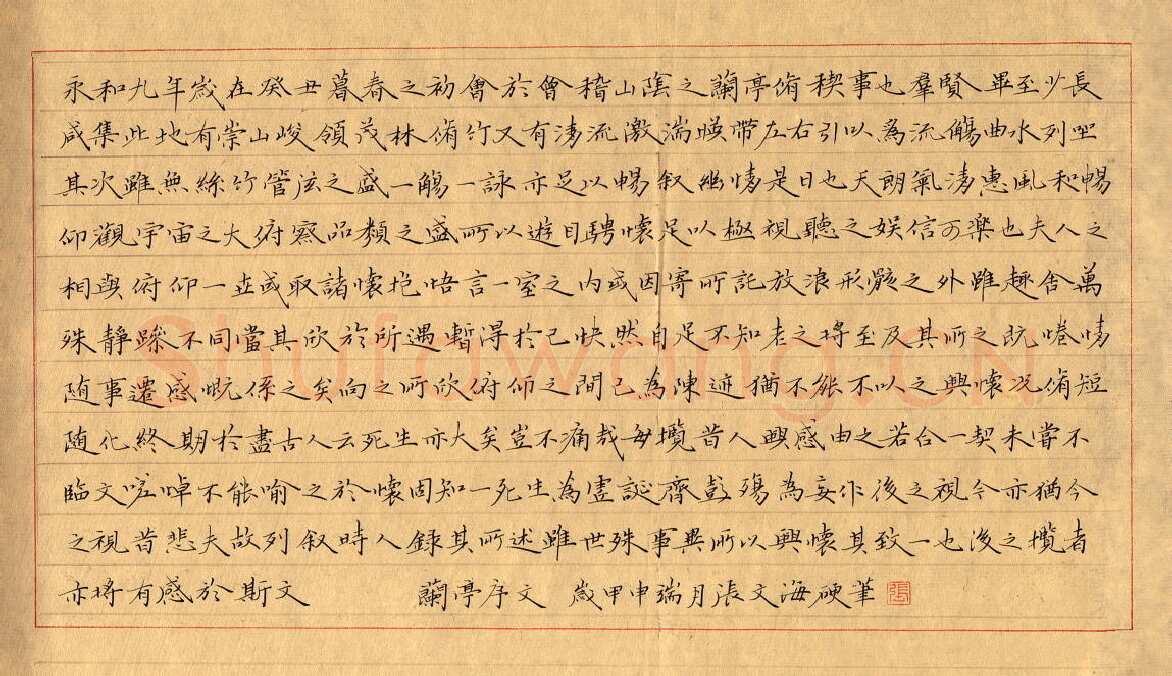 永和九年歲在癸丑暮春之初會於會稽山陰之蘭亭脩稧事也羣賢畢至少長
咸集此地有崇山峻領茂林脩竹又有清流激湍暎帶左右引以為流觴曲水列坐
其次雖無絲竹管弦之盛一觴一詠亦足以暢叙幽情是日也天朗氣清惠風和暢
仰觀宇宙之大俯察品類之盛所以遊目騁懷足以極視聽之娛信可樂也夫人之
相與俯仰一世或取諸懷抱悟言一室之内或因寄所託放浪形骸之外雖趣舍萬
殊靜躁不同當其欣於所遇暫得於己快然自足不知老之將至及其所之既惓情
隨事遷感慨係之矣向之所欣俯仰之間已為陳迹猶不能不以之興懷況脩短
隨化終期於盡古人云死生亦大矣豈不痛哉每攬昔人興感由之若合一契未嘗不
臨文嗟悼不能喻之於懷固知一死生為虛誕齊彭殤為妄作後之視今亦猶今
之視昔悲夫故列叙時人錄其所述雖世殊事異所以興懷其致一也後之攬者
亦將有感於斯文 蘭亭序文 歲甲申瑞月張文海硬筆 張
shufawang.cn